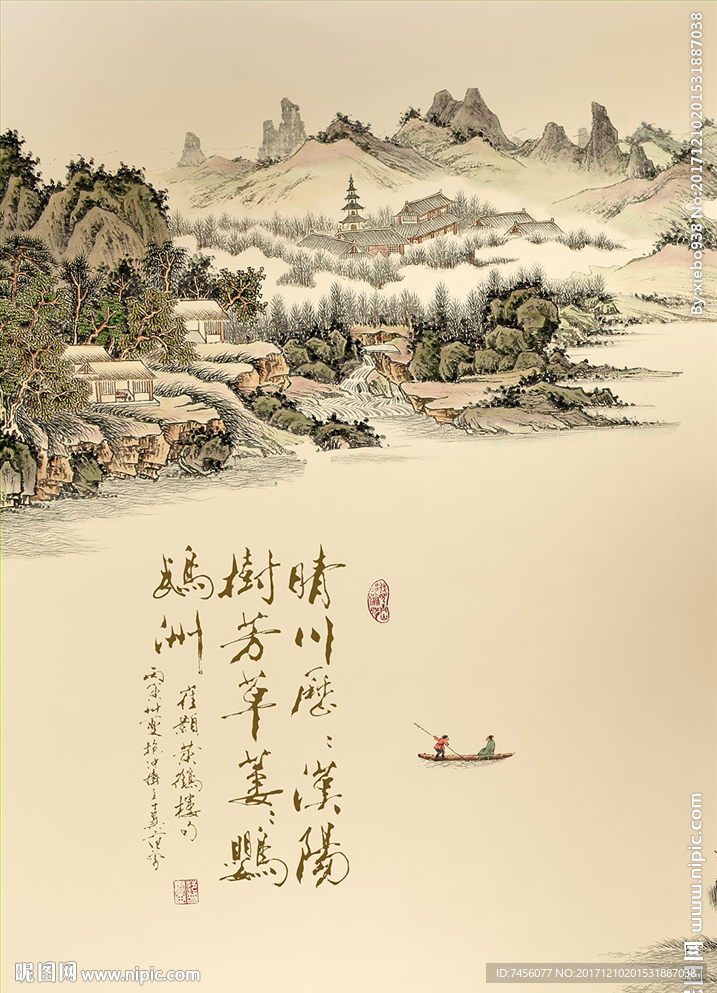 晴川歷〻漢陽
樹芳草萋〻鸚
鵡洲
崔顥黃鶴樓句
By:xiebo958 No:20171210201531887038
www.nipic.com
昵图网 www.nipic.com
ID:7456077 NO:20171210201531887038